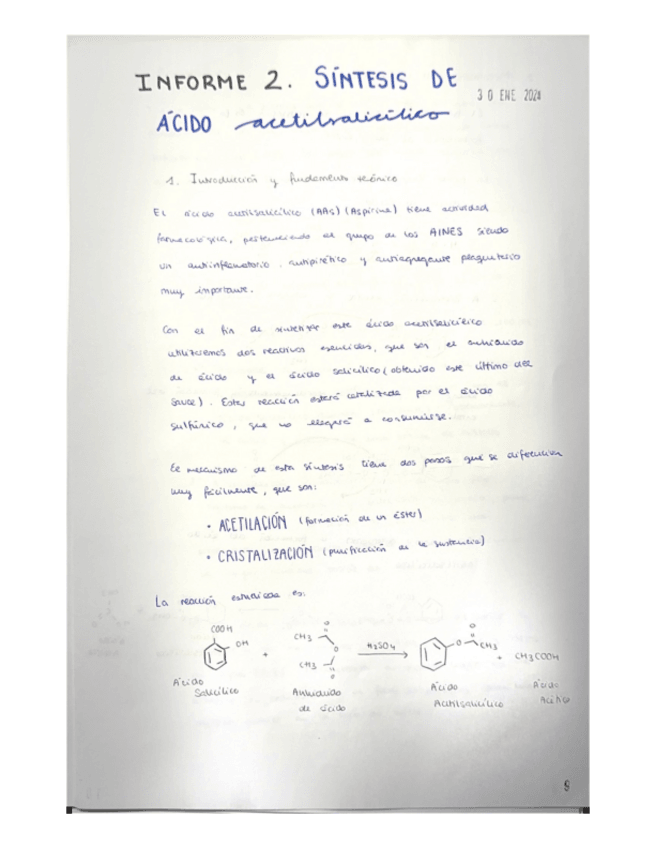 INFORME 2. SÍNTESIS DE
30 ENE 2024
ÁCIDO acetilsalicílico
1. Introducción y fundamento teórico
El ácido acetilsalicílico (AAs) (Aspirina) tiene actividad
farmacológica, perteneciendo al grupo de los AINES siendo
un antiinflamatorio, antipirético y antiagregante plaquetario
muy importante.
Con el fin de sintetizar este ácido acetilsalicílico
utilizaremos dos reactivos esenciales, que son el anhídrido
de ácido y el ácido salicílico (obtenido este último del
sauce). Esta reacción estará catalizada por el ácido
sulfúrico, que no llegará a consumirse.
El mecanismo de esta síntesis tiene dos pasos que se diferencian
muy fácilmente, que son:
• ACETILACIÓN (formación de un éster)
• CRISTALIZACIÓN (purificación de la sustancia)
La reacción estudiada es:
COOH
OH
+
CH3
O
O
CH3
O
H2SO4
O
O
CH3
+ CH3COOH
Ácido
Salicílico
Anhídrido
de ácido
Ácido
Acetilsalicílico
Ácido
Acético
9